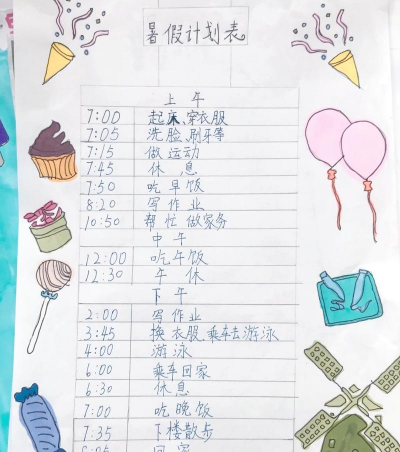 暑假计划表
上午
7:00 起床、穿衣服
7:05 洗脸、刷牙等
7:15 做运动
7:45 休息
7:50 吃早饭
8:20 写作业
10:50 帮忙做家务
中午
12:00 吃午饭
12:30 午休
下午
2:00 写作业
3:45 换衣服、乘车去游泳
4:00 游泳
6:00 乘车回家
6:30 休息
7:00 吃晚饭
7:35 下楼散步